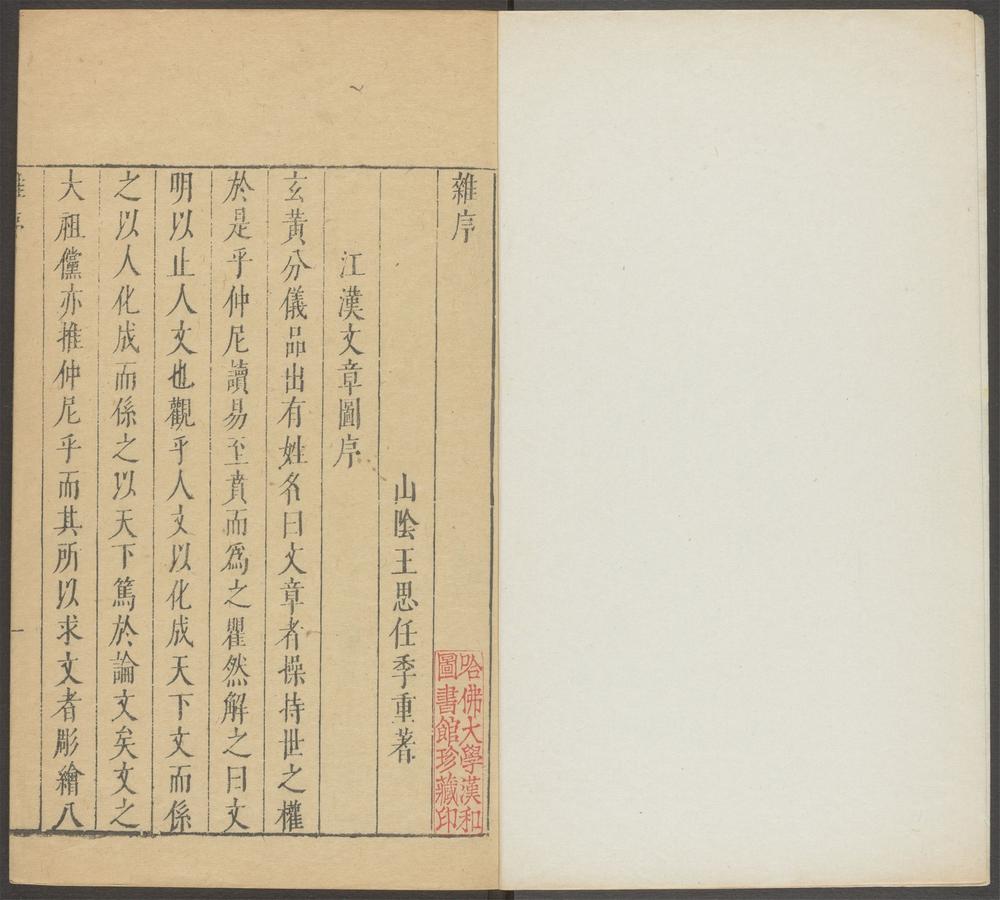 雜序
山陰王思任季重著
江漢文章圖序
玄黃分儀品出有姓名曰文章者操持世之權
於是乎仲尼讀易至賁而爲之瞿然解之曰文
明以止人文也觀乎人文以化成天下文而係
之以人化成而係之以天下篤於論文矣文之
大祖儻亦推仲尼乎而其所以求文者彫繪八
雜序
一
哈佛大學漢和
圖書館珍藏印